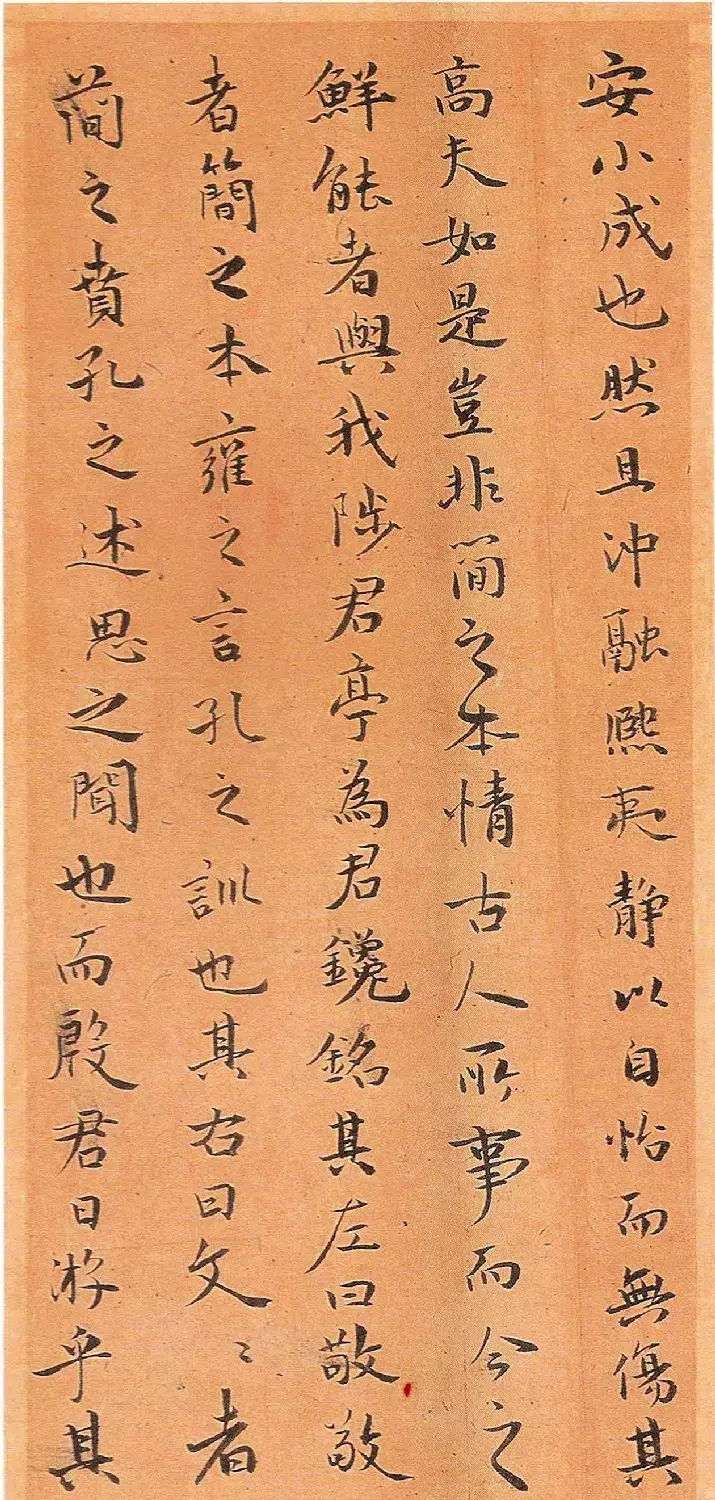 安小成也然且沖融熈夷静以自怡而無傷其
高夫如是豈非簡之本情古人所事而今之
鮮能者與我陟君亭為君鑱銘其左曰敬敬
者簡之本雍之言孔之訓也其右曰文〻者
簡之賁孔之述思之聞也而殷君日游乎其